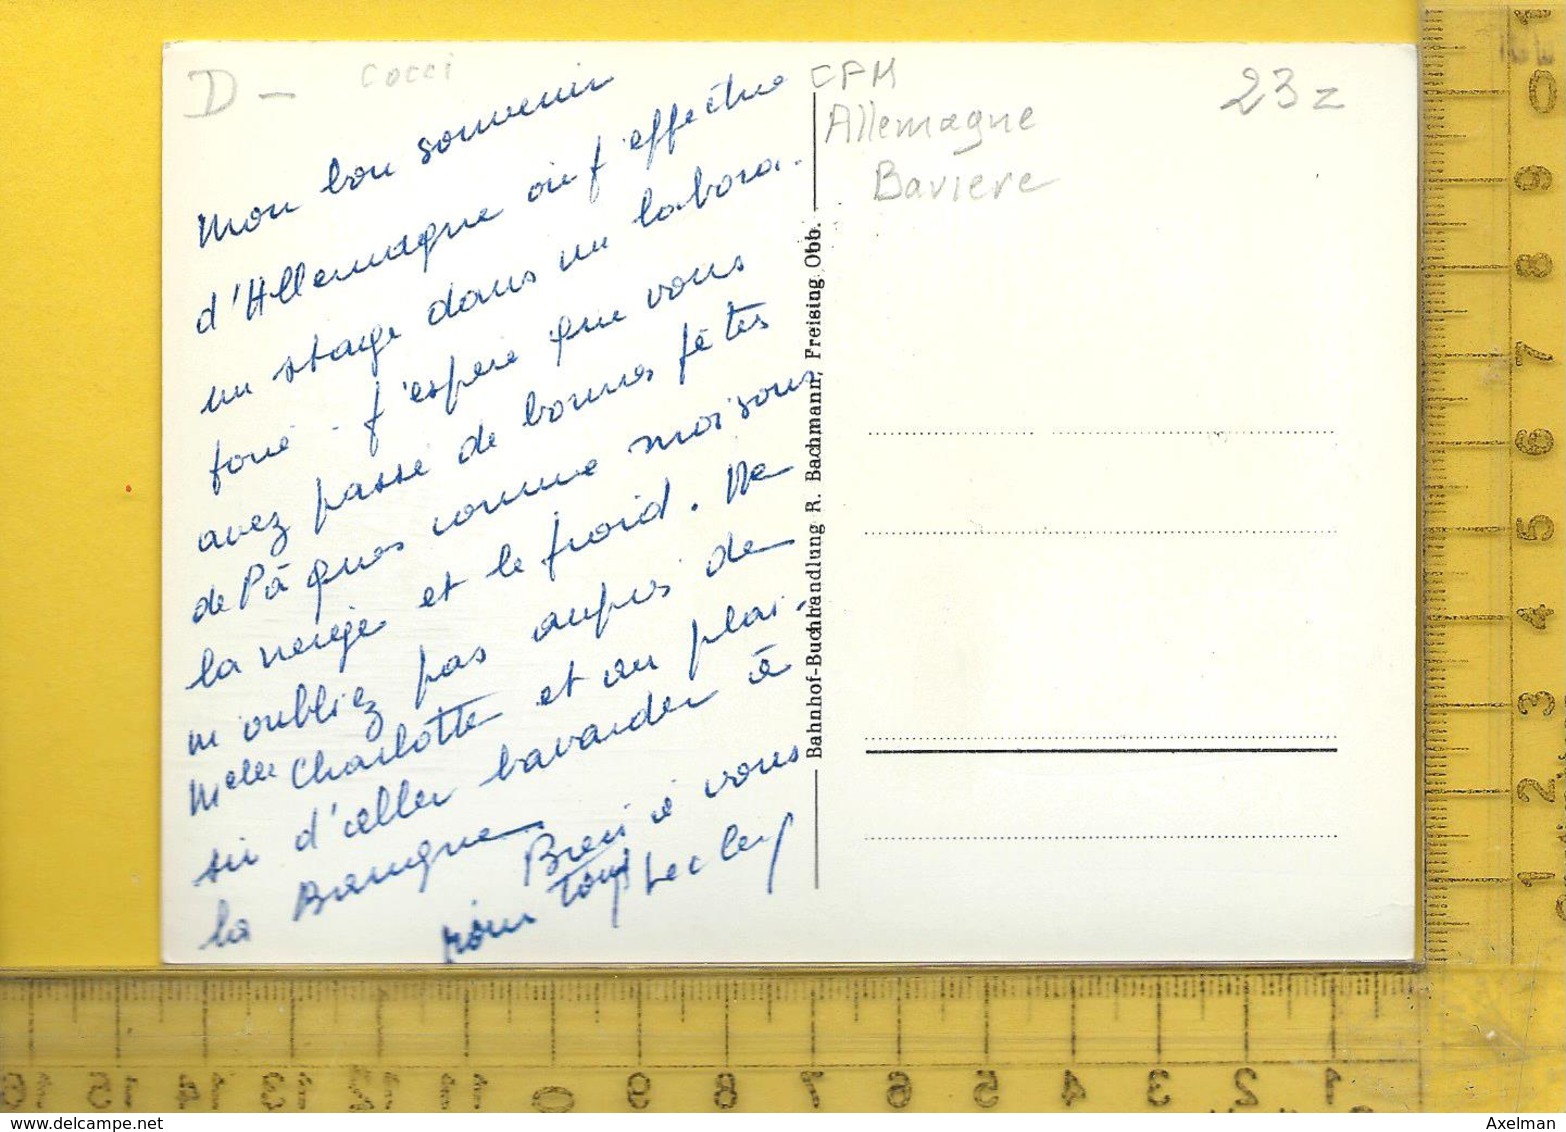 D -
cocci
Mon bon souvenir
d'Allemagne où j'effectue
un stage dans un labora-
toire - j'espère que vous
avez passé de bonnes fêtes
de Pâques comme moi sous
la neige et le froid. Ne
m'oubliez pas auprès de
Melle Charlotte et au plai-
sir d'aller bavarder à
la Banque
Bien à vous
tous
Bahnhof-Buchhandlung R. Bachmann, Freising Obb.
CPM
Allemagne
Baviere
23 z
0 9 8 7 6 5 4 3 2 1
16 15 14 13 12 11 0 9 8 7 6 5 4 3 2 1
www.delcampe.net
Axelman